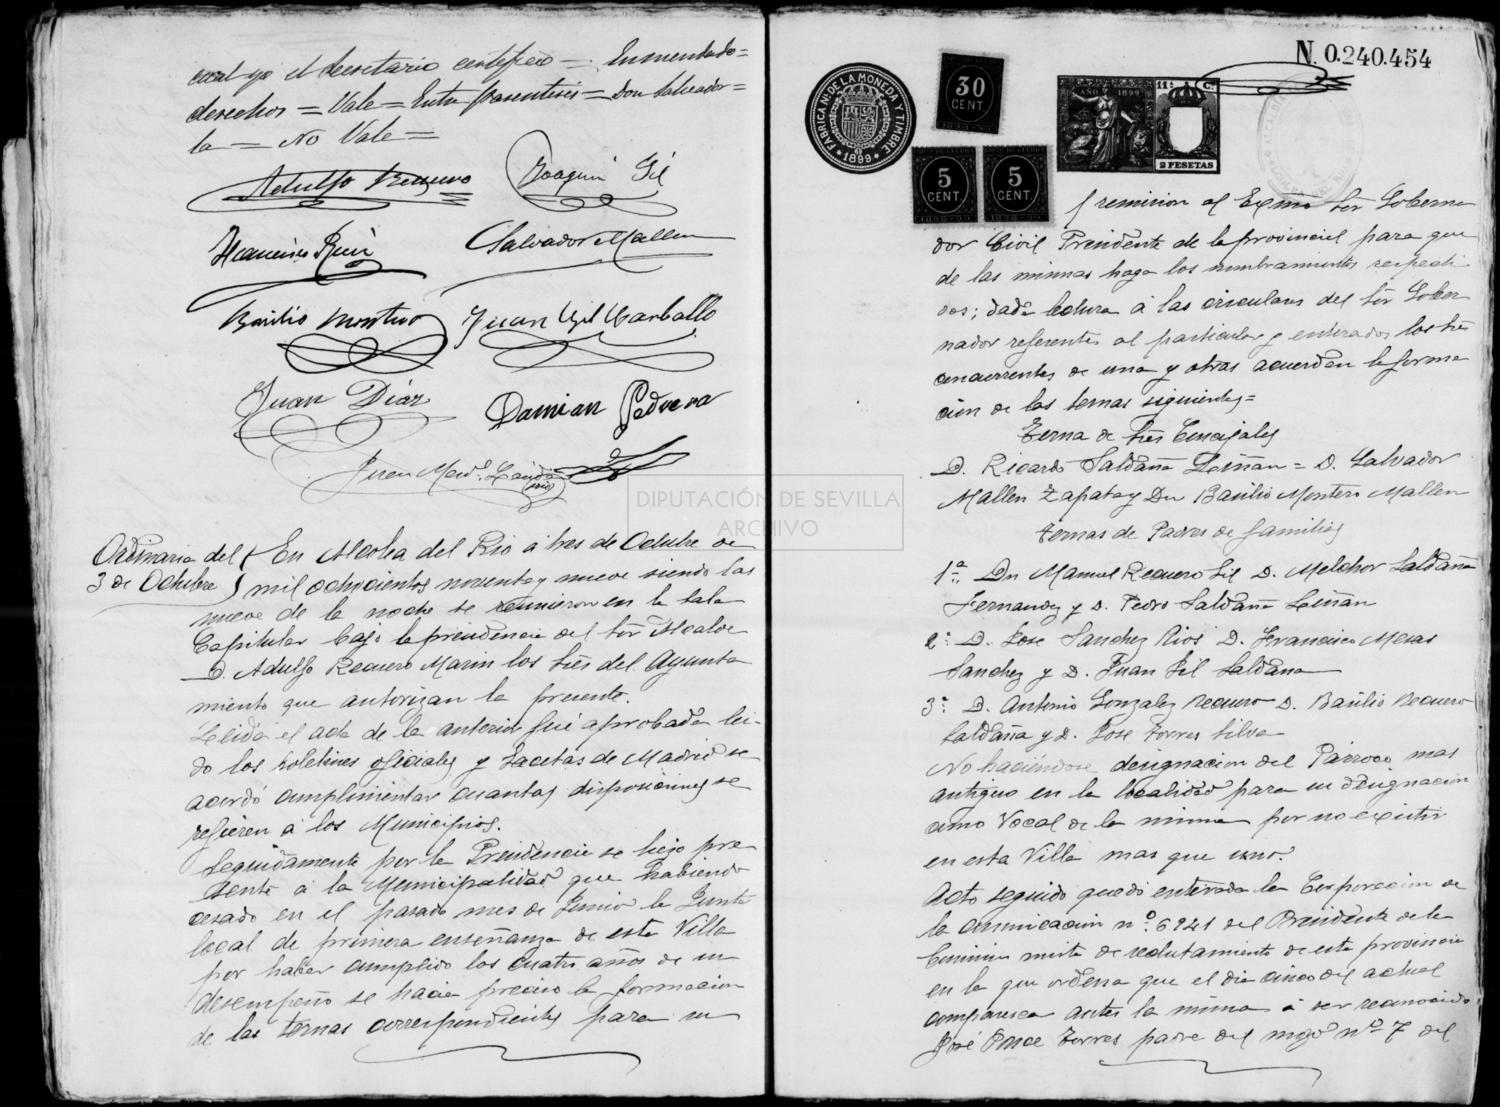 cual yo el Secretario certifico = Enmendado =
derechos = Vale = Entre parentesis = don Salvador =
la = No Vale =
Adolfo Requero Joaquin Gil
Francisco Ruiz Salvador Mallen
Basilio Montero Juan Gil Carballo
Juan Diaz Damian Pedrera
Juan Man.l
Ordinaria del
3 de Octubre
En Alcolea del Rio a tres de Octubre de
mil ochocientos noventa y nueve siendo las
nueve de la noche se reunieron en la Sala
Capitular bajo la presidencia del Sor Alcalde
D. Adolfo Requero Marin los Sres del Ayunta
miento que autorizan la presente.
Leida el acta de la anterior fué aprobada lei-
do los boletines oficiales y Gacetas de Madrid se
acordó cumplimentar cuantas disposiciones se
refieren a los Municipios.
Seguidamente por la Presidencia se hizo pre
sente a la Municipalidad que habiendo
cesado en el pasado mes de Junio la Junta
local de primera enseñanza de esta Villa
por haber cumplido los cuatro años de su
desempeño se hacia preciso la formacion
de las ternas correspondientes para su
FABRICA N. DE LA MONEDA Y TIMBRE
1899
30
CENT.
5
CENT.
5
CENT.
1898-99
1898-99
AÑO 1899
11ª C.
2 PESETAS
N. 0.240.454
remision al Exmo Sor Goberna
dor Civil Presidente de la provincial para que
de las mismas haga los nombramientos respecti
vos; dada lectura á las circulares del Sor Gober
nador referentes al particular y enterados los Sres
concurrentes de una y otras acuerdan la forma
cion de las ternas siguientes =
Terna de Sres Concejales
D. Ricardo Saldaña Liñan = D. Salvador
Mallen Zapata y Dn Basilio Montero Mallen
Ternas de Padres de familias
1ª Dn Manuel Requero Gil D. Melchor Saldaña
Fernandez y D. Pedro Saldaña Liñan
2ª D. Jose Sanchez Rios D. Francisco Mesas
Sanchez y D. Juan Gil Saldaña
3ª D. Antonio Gonzalez Requero D. Basilio Requero
Saldaña y D. Jose Torres Silva
No haciendose designacion del Párroco mas
antiguo en la localidad para su designacion
como Vocal de la misma por no existir
en esta Villa mas que uno.
Acto seguido quedó enterada la Corporacion de
la comunicacion nº 6241 del Presidente de la
Comision mista de reclutamiento de esta provincia
en la que ordena que el dia cinco del actual
comparezca antes la misma á ser reconocido
José Ponce Torres padre del mozo nº 7 del
DIPUTACIÓN DE SEVILLA
ARCHIVO